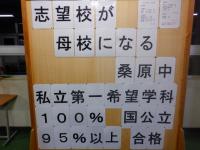 志望校が
母校になる
桑原中
私立第一希望学科
100%　国公立
95%以上　合格